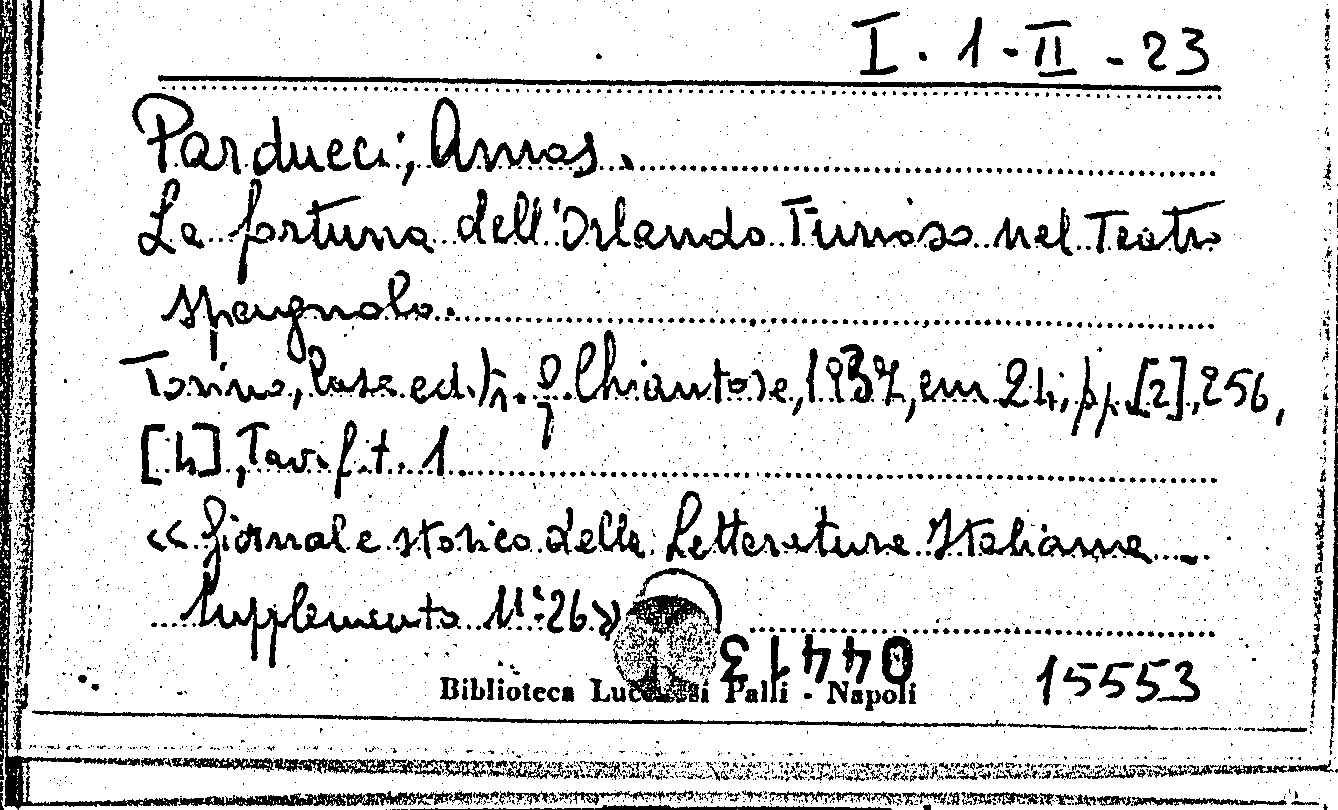 I. 1 - II - 23
Parducci, Amos.
La fortuna dell'Orlando Furioso nel Teatro
spagnolo.
Torino, Casa editr. G. Chiantore, 1937, cm 24, pp. [2], 256,
[4], Tav. f. t. 1
«Giornale storico della Letteratura Italiana -
Supplemento N° 26»
04413
Biblioteca Lucchesi Palli - Napoli
15553